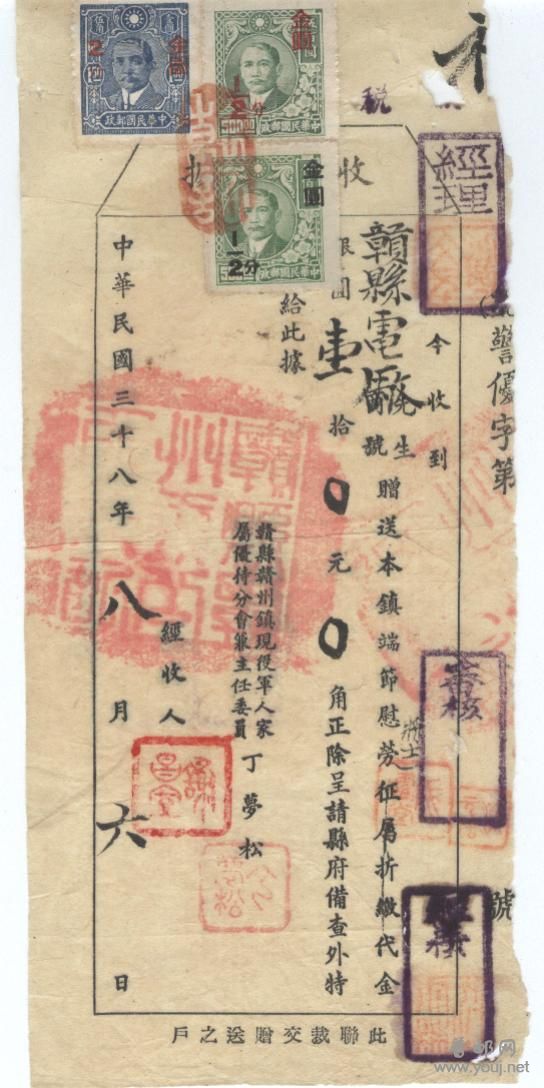 收 據
今收到
贛縣電廠 生號 贈送本鎮端節慰勞征屬折繳代金
將士
銀圓壹拾0元0角正除呈請縣府備查外特
給此據
贛縣贛州鎮現役軍人家
屬優待分會兼主任委員 丁夢松
經收人
中華民國三十八年八月六日
此聯裁交贈送之戶
警優字第 號
經理
審核
稅
金圓
2
中華民國郵政
金圓
1/2分
500
中華民國郵政
金圓
1/2分
500
舊郵网
www.youj.net